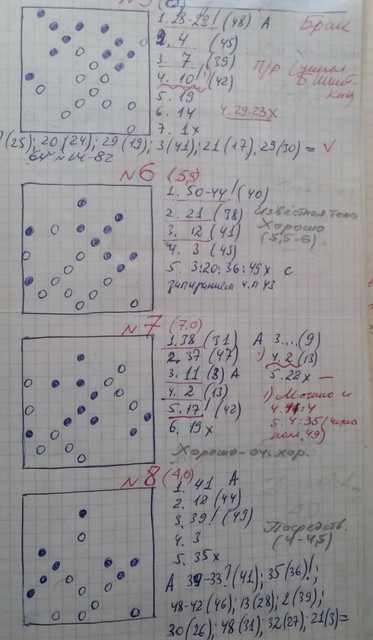 1. 28-22! (48) А
Брак
2. 4 (45)
3. 7 (39)
4. 10! (42)
п/р
5. 19
6. 14
4. 29-23x
7. 1x
(25); 20 (24); 29 (19); 3 (41); 21 (17), 29 (30) =
№6 (5,5)
1. 50-44! (40)
2. 21 (38)
Известная тема
3. 12 (41)
Хорошо
4. 3 (43)
(5,5-6)
5. 3:20; 36:45x с
запиранием ч.п 43
№7 (7,0)
1. 38 (31)
А 3....(9)
2. 37 (47)
1) 4. 2 (13)
3. 11 (8) А
5. 22x —
4. 2 (13)
5. 17! (42)
6. 19x
5. 4:35 (
Хорошо-оч. хор.
№8 (4,0)
1. 41 А
2. 12 (44)
3. 39! (49)
Посредств.
4. 3
(4-4,5)
5. 35x
А 39-33? (41); 35 (36)!;
48-42 (46); 13 (28); 2 (39);
30 (26); 48 (31); 32 (27); 21 (3) =